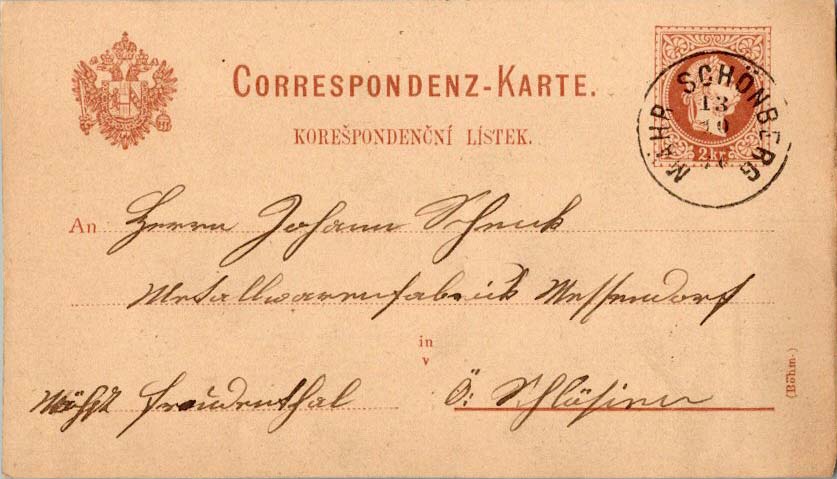 CORRESPONDENZ-KARTE.
KOREŠPONDENČNÍ LÍSTEK.
2 kr
MÄHR SCHÖNBERG
13
10
An Herrn Johann Schenk
Metallwarenfabrick Messendorf
in
v
Freudenthal Ö: Schlösien
(Böhm.)